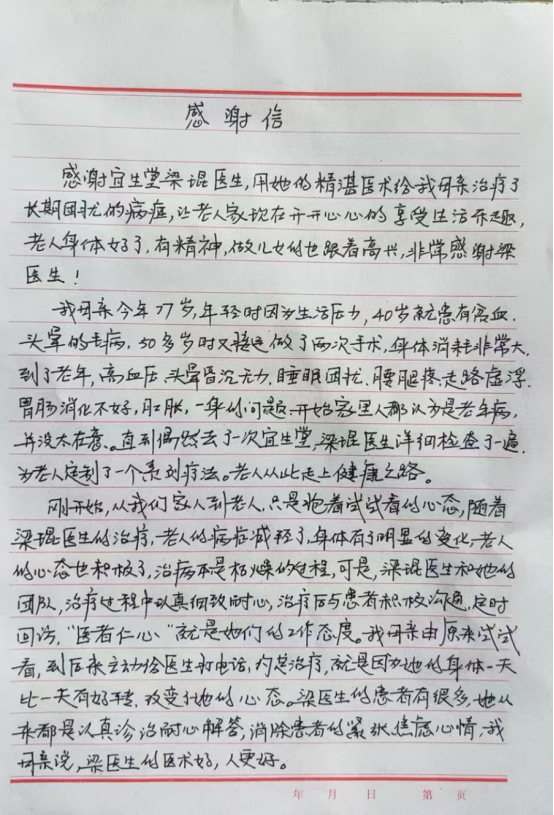 感谢信
感谢宜生堂梁琨医生，用她的精湛医术给我母亲治疗了
长期困扰的病症，让老人家现在开开心心的享受生活乐趣，
老人身体好了，有精神，做儿女的也跟着高兴，非常感谢梁
医生！
我母亲今年77岁，年轻时因为生活压力，40岁就患有高血
头晕的毛病，50多岁时又接连做了两次手术，身体消耗非常大，
到了老年，高血压、头晕昏沉无力，睡眠困扰，腰腿疼，走路虚浮，
胃肠消化不好，肚胀，一身的问题，开始家里人都认为是老年病，
并没太在意。直到偶然去了一次宜生堂，梁琨医生详细检查了一遍，
为老人定制了一个系列疗法。老人从此走上健康之路。
刚开始，从我们家人到老人，只是抱着试试看的心态，随着
梁琨医生的治疗，老人的病症减轻了，身体有了明显的变化，老人
的心态也积极了，治病本是枯燥的过程，可是，梁琨医生和她的
团队，治疗过程中认真细致耐心，治疗后与患者积极沟通，定时
回访，“医者仁心”就是她们的工作态度。我母亲由原来试试
看，到后来主动给医生打电话，约定治疗，就是因为她的身体一天
比一天有好转，改变了她的心态。梁医生的患者有很多，她从
来都是认真诊治耐心解答，消除患者的紧张焦虑心情，我
母亲说，梁医生的医术好，人更好。
年 月 日 第 页